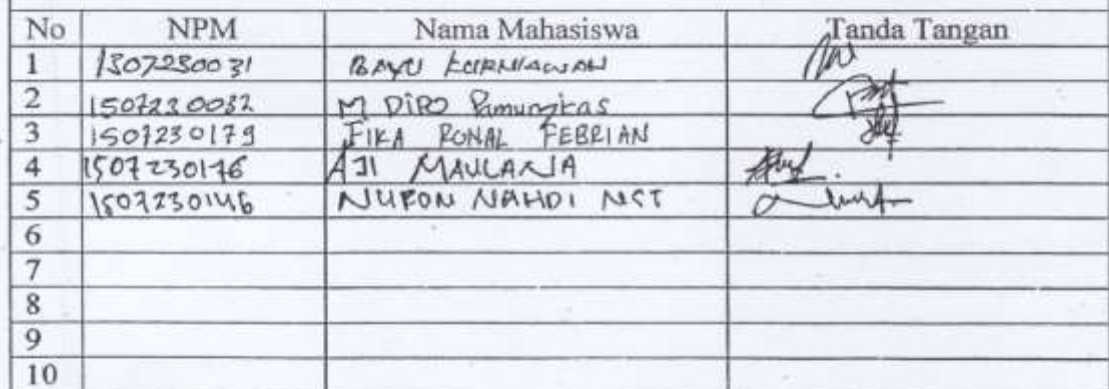 No NPM Nama Mahasiswa Tanda Tangan
1 1307230031 BAYU KURNIAWAN
2 1507230032 M DIPO Pamungkas
3 1507230179 FIKA RONAL FEBRIAN
4 1507230176 AJI MAULANA
5 1507230146 NUFON NAHDI NST
6
7
8
9
10